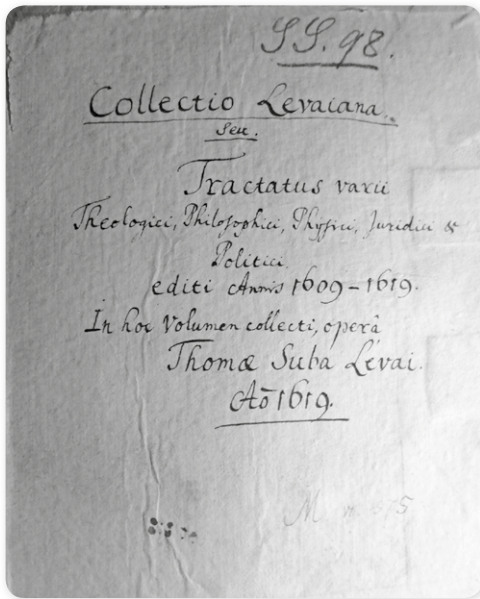 SS. 98.
Collectio Levaiana.
Seu.
Tractatus varii
Theologici, Philosophici, Physici, Juridici &
Politici
editi Annis 1609-1619.
In hoc Volumen collecti, operâ
Thomæ Suba Lévai.
Aō 1619.